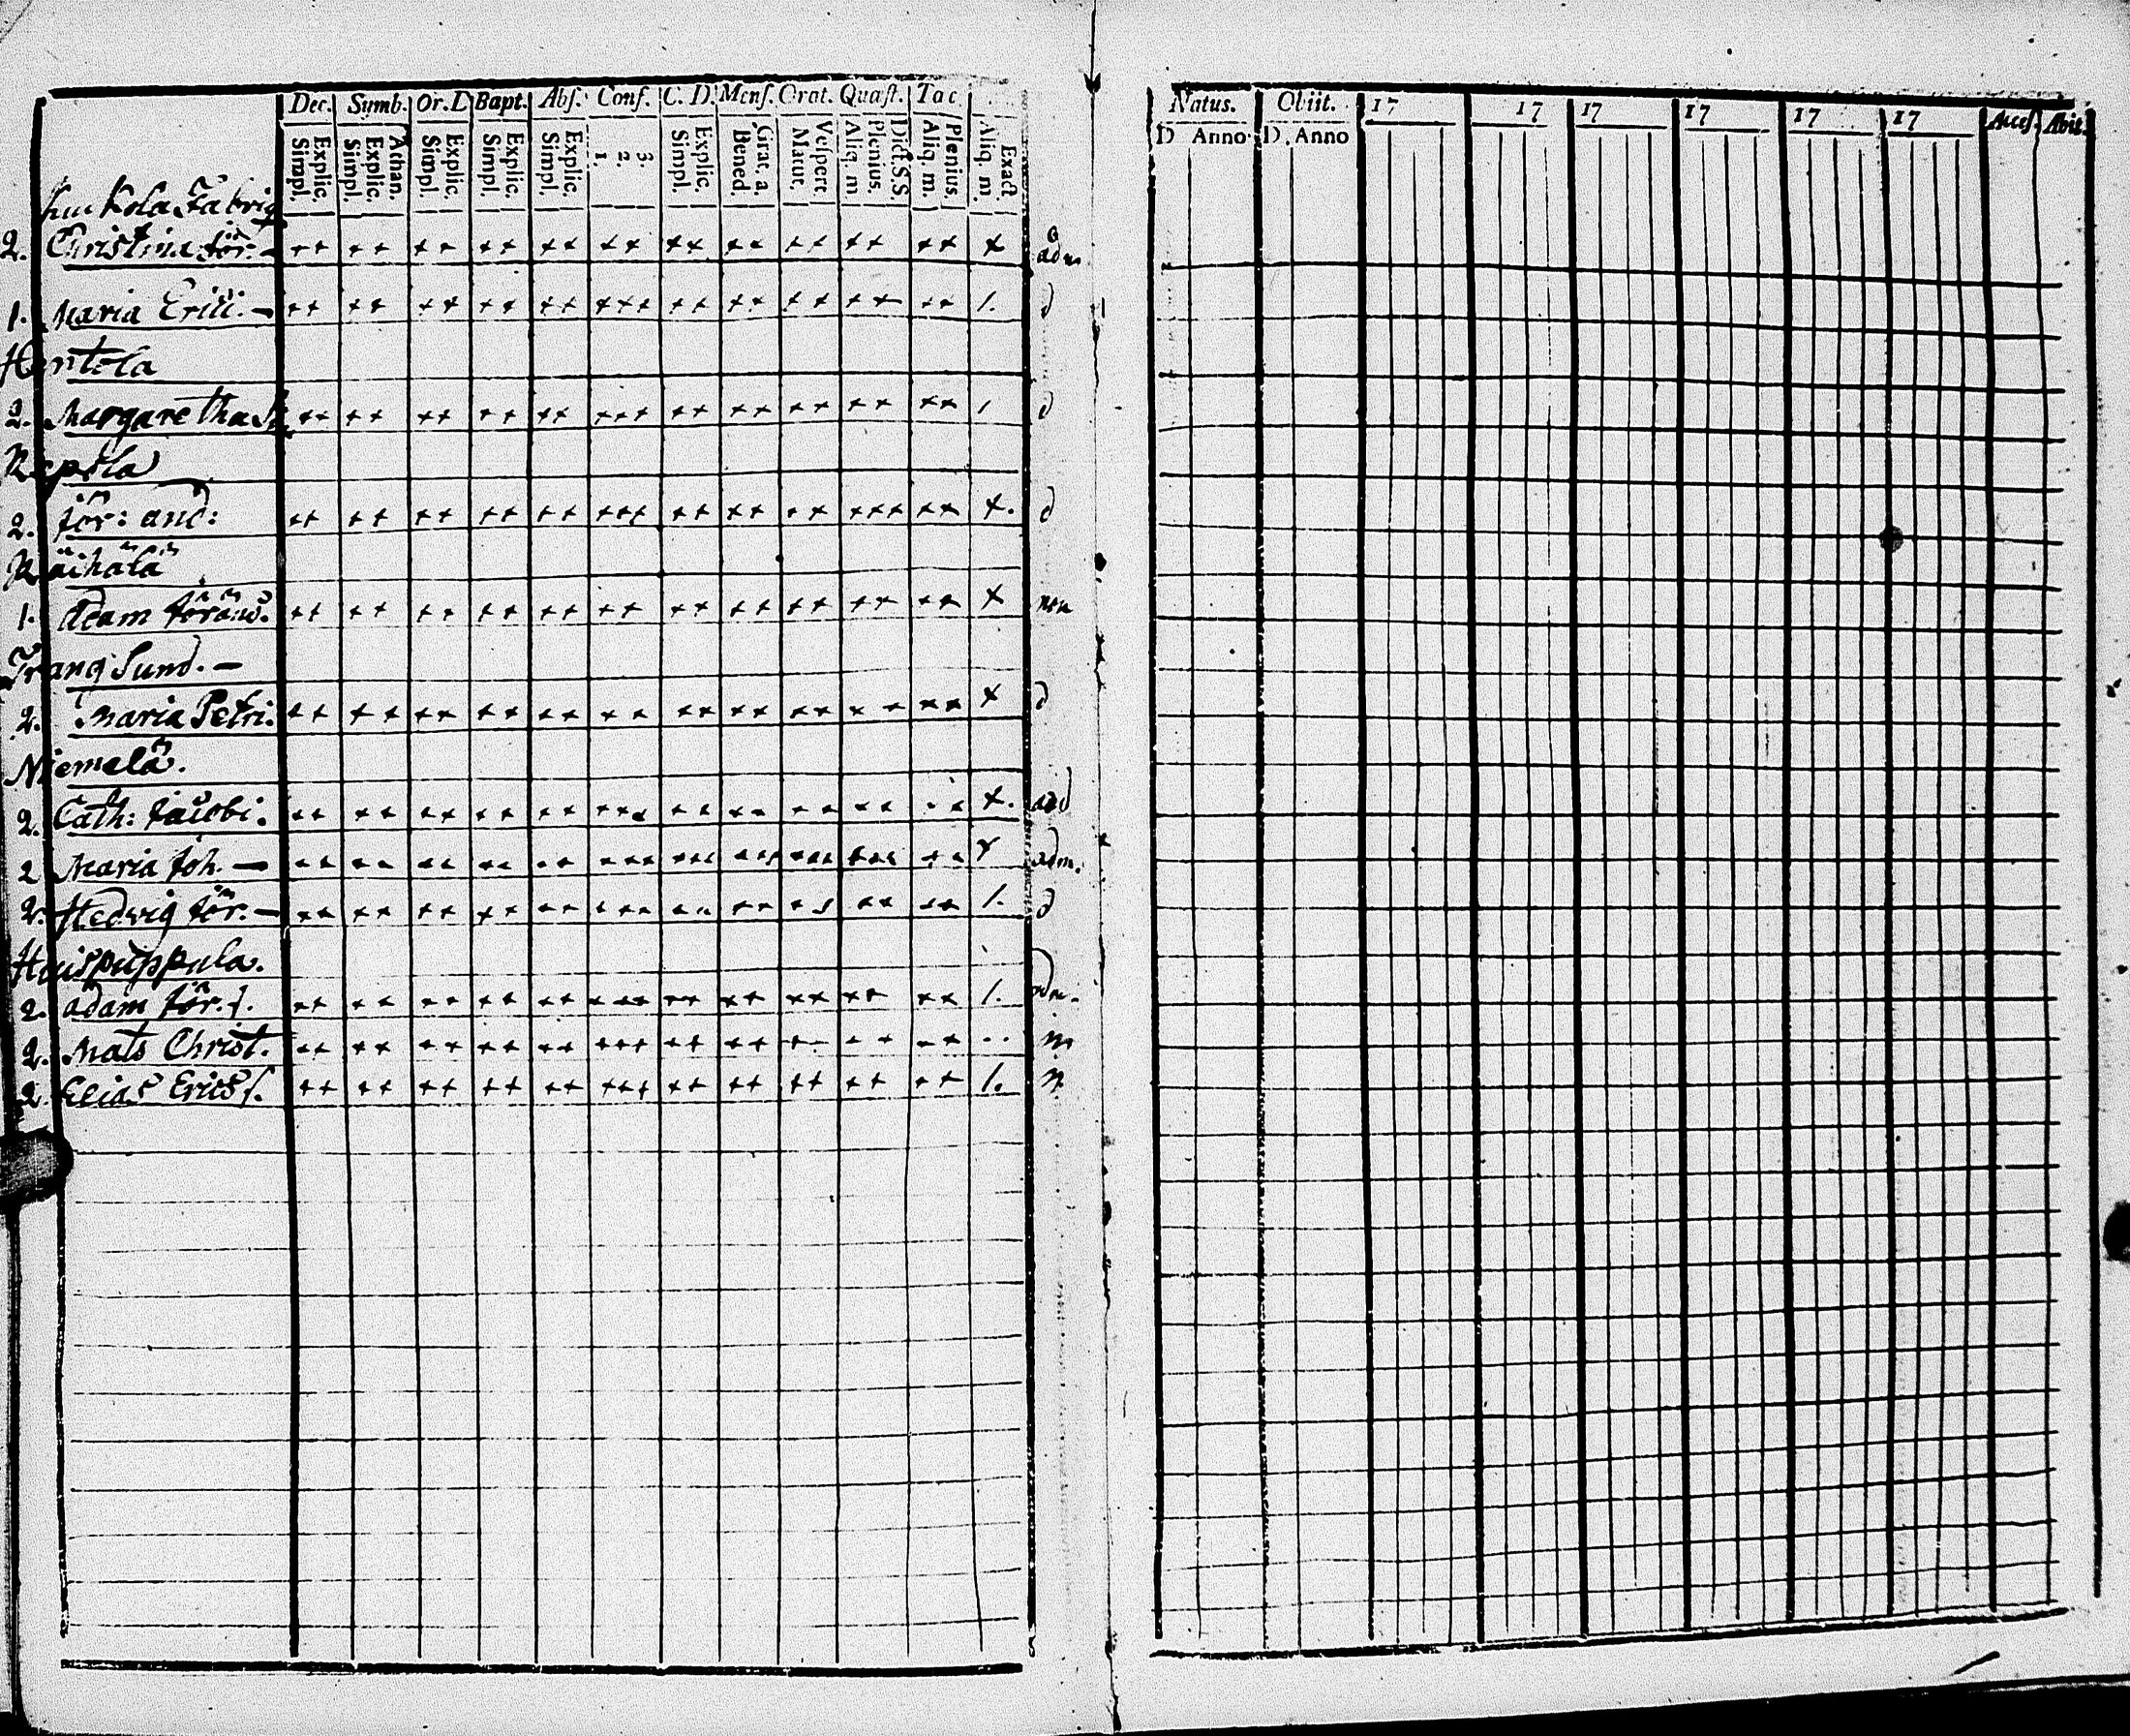 Dec. Sumb. Or. D Bapt. Abs. Conf. C. D. Mens. Orat. Quæst. Tac.
Explic. Simpl. Athan. Explic. Simpl. Explic. Simpl. Explic. Simpl. Explic. Simpl. 3 2. 1. Explic. Simpl. Grat. a. Bened. Vespert. Matut. Dict. S.S. Plenius. Aliq. m Plenius. Aliq. m. Exact. Aliq. m.
Kuckola Fabriq
2. Christina Jör. - ++ ++ ++ ++ ++ ++ ++ ++ ++ ++ ++ + adm
1. Maria Erici. - ++ ++ ++ ++ ++ +++ ++ ++ ++ ++ ++ 1. d
Hentola
2. Margaretha ++ ++ ++ ++ ++ +++ ++ ++ ++ ++ ++ / d
Repola
2. Jör: and: ++ ++ ++ ++ ++ +++ ++ ++ ++ +++ ++ +. d
Räihälä
1. Adam Jörans. ++ ++ ++ ++ ++ ++ ++ ++ ++ ++ ++ + non
Trangsund. -
2. Maria Petri. ++ ++ ++ ++ ++ ++ ++ ++ ++ ++ ++ + d
Niemelä.
2. Cath: Jacobi. ++ ++ ++ ++ ++ +++ ++ ++ ++ ++ ++ +. ad
2 Maria Joh. - ++ ++ ++ ++ ++ +++ +++ +++ +++ +++ ++ + adm.
2. Hedvig Jör. - ++ ++ ++ ++ ++ +++ ++ ++ ++ ++ ++ 1. d
Huispuppula.
2. Adam Jör. s. ++ ++ ++ ++ ++ +++ ++ ++ ++ ++ ++ 1. adm.
2. Mats Christ. ++ ++ ++ ++ ++ +++ ++ ++ ++ ++ ++ .. m
2. Elias Erics s. ++ ++ ++ ++ ++ +++ ++ ++ ++ ++ ++ 1. n
Natus. Obiit. 17 17 17 17 17 17 Acces. Abit.
D Anno D. Anno